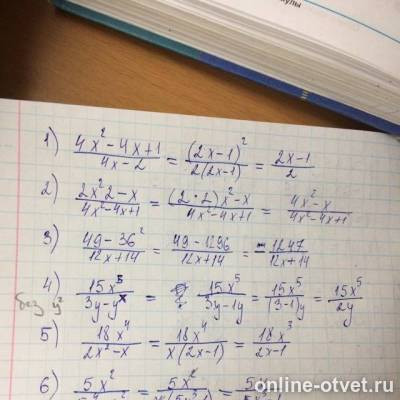 1) (4x² - 4x + 1)/(4x - 2) = (2x-1)²/(2(2x-1)) = (2x-1)/2
2) (2x² 2 - x)/(4x² - 4x + 1) = ((2·2)x² - x)/(4x² - 4x + 1) = (4x² - x)/(4x² - 4x + 1)
3) (49 - 36²)/(12x + 14) = (49 - 1296)/(12x + 14) = -1247/(12x + 14)
4) 15x⁵/(3y - yˣ) = 15x⁵/(3y - 1y) = 15x⁵/((3-1)y) = 15x⁵/2y
без y²
5) 18x⁴/(2x² - x) = 18x⁴/(x(2x-1)) = 18x³/(2x-1)
6) 5x² = 5x² =
online-otvet.ru